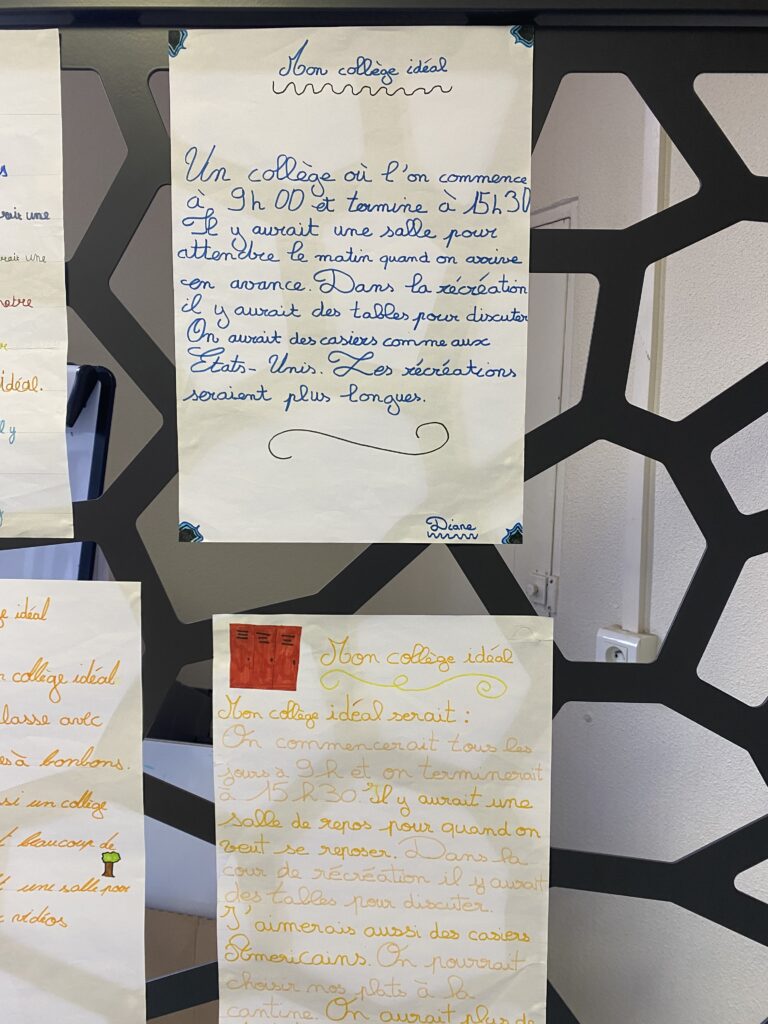 Mon collège idéal
Un collège où l'on commence
à 9h00 et termine à 15h30
Il y aurait une salle pour
attendre le matin quand on arrive
en avance. Dans la récréation
il y aurait des tables pour discuter
On aurait des casiers comme aux
Etats-Unis. Les récréations
seraient plus longues.
Diane
une
une
idéal.
l y
idéal
collège idéal
classe avec
à bonbons.
si un collège
beaucoup de
une salle pour
vidéos
Mon collège idéal
Mon collège idéal serait :
On commencerait tous les
jours à 9h et on terminerait
à 15h30. Il y aurait une
salle de repos pour quand on
veut se reposer. Dans la
cour de récréation il y aurait
des tables pour discuter.
J'aimerais aussi des casiers
Americains. On pourrait
choisir nos plats à la
cantine. On aurait plus de